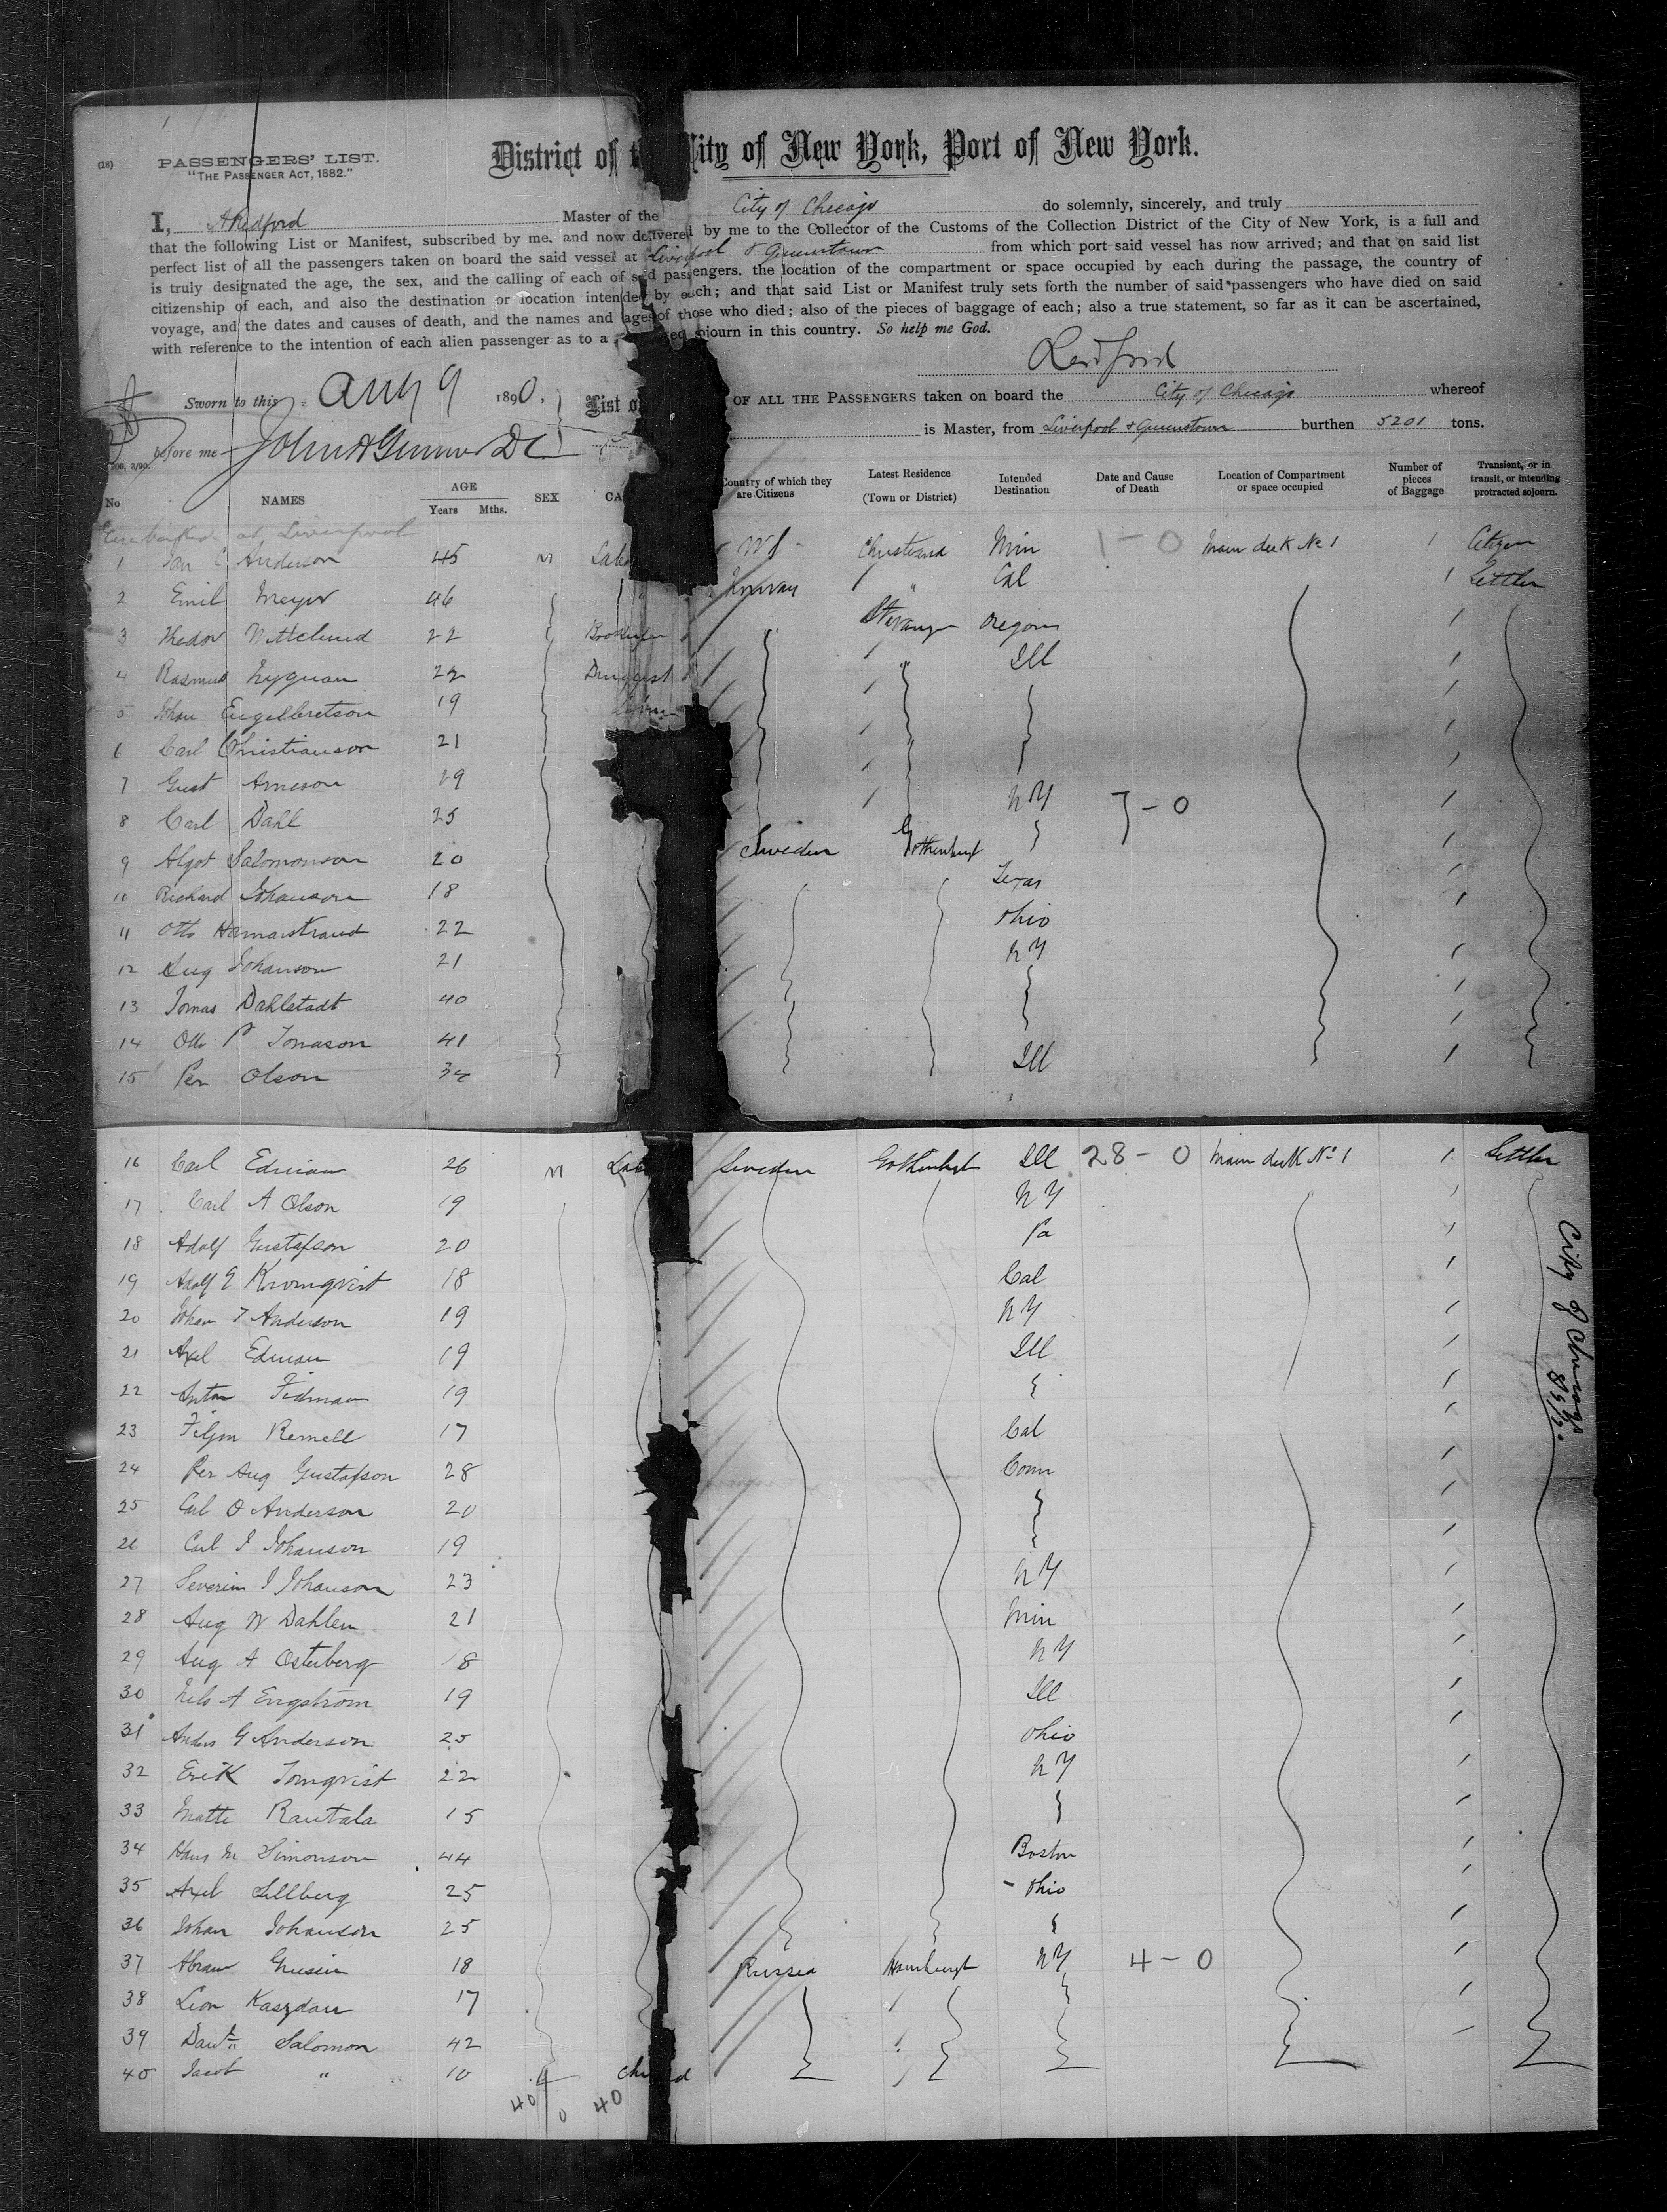 (18)
PASSENGERS' LIST.
"THE PASSENGER ACT, 1882."
District of t City of New York, Port of New York.
I, A Redford Master of the City of Chicago do solemnly, sincerely, and truly
that the following List or Manifest, subscribed by me, and now delivered by me to the Collector of the Customs of the Collection District of the City of New York, is a full and
perfect list of all the passengers taken on board the said vessel at Liverpool & Queenstown from which port said vessel has now arrived; and that on said list
is truly designated the age, the sex, and the calling of each of said passengers, the location of the compartment or space occupied by each during the passage, the country of
citizenship of each, and also the destination or location intended by each; and that said List or Manifest truly sets forth the number of said passengers who have died on said
voyage, and the dates and causes of death, and the names and ages of those who died; also of the pieces of baggage of each; also a true statement, so far as it can be ascertained,
with reference to the intention of each alien passenger as to a sojourn in this country. So help me God.
Redford
Sworn to this Aug 9 1890. List of OF ALL THE PASSENGERS taken on board the City of Chicago whereof
before me John A is Master, from Liverpool & Queenstown burthen 5201 tons.
No NAMES AGE Years Mths. SEX CA Country of which they are Citizens Latest Residence (Town or District) Intended Destination Date and Cause of Death Location of Compartment or space occupied Number of pieces of Baggage Transient, or in transit, or intending protracted sojourn.
Embarked at Liverpool
1 Anderson 45 M Labo Christiana Min 1-0 Main deck No 1 1 Citizen
2 Emil Meyer 46 Norway " Cal 1 Settler
3 Thedor 22 Stavanger Oregon 1
4 Rasmus 22 Druggist " Ill 1
5 Johan Engelbretson 19 1
6 Carl Christianson 21 1
7 Gust Arneson 19 1
8 Carl Dahl 25 N Y 7-0 1
9 Algot Salomonson 20 Sweden Gothenburg 1
10 Richard Johanson 18 Texas 1
11 Otto Hamarstrand 22 Ohio 1
12 Aug Johanson 21 N Y 1
13 Jonas Dahlstadt 40 1
14 Otto P Jonason 41 1
15 Per Olson 34 Ill 1
16 Carl Edman 26 M Lab Sweden Gothenburg Ill 28-0 Main deck No 1 1 Settler
17 Carl A Olson 19 N Y 1
18 Adolf Gustafson 20 Pa 1
19 Adolf E Kronqvist 18 Cal 1
20 Johan T Anderson 19 N Y 1
21 Axel Edman 19 Ill 1
22 Anton Fidman 19 1
23 Rernell 17 Cal 1
24 Per Aug Gustafson 28 Conn 1
25 Carl O Anderson 20 1
26 Carl J Johanson 19 1
27 Severin J Johanson 23 N Y 1
28 Aug W Dahlen 21 Min 1
29 Aug A Osterberg 18 N Y 1
30 Nels A Engström 19 Ill 1
31 Anders G Anderson 25 Ohio 1
32 Erik Tornqvist 22 N Y 1
33 Matti Rautala 15 1
34 Hans M Simonson 44 Boston 1
35 Axel Sellberg 25 Ohio 1
36 Johan Johanson 25 1
37 Abram 18 Russia Hamburgh N Y 4-0 1
38 Leon Kaszdan 17 1
39 Salomon 42 1
40 Jacob " 10 Child
40 0 40
City of Chicago